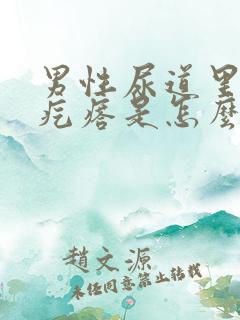 男性尿道里
疙瘩是怎麼
趙文源
未经同意禁止转载